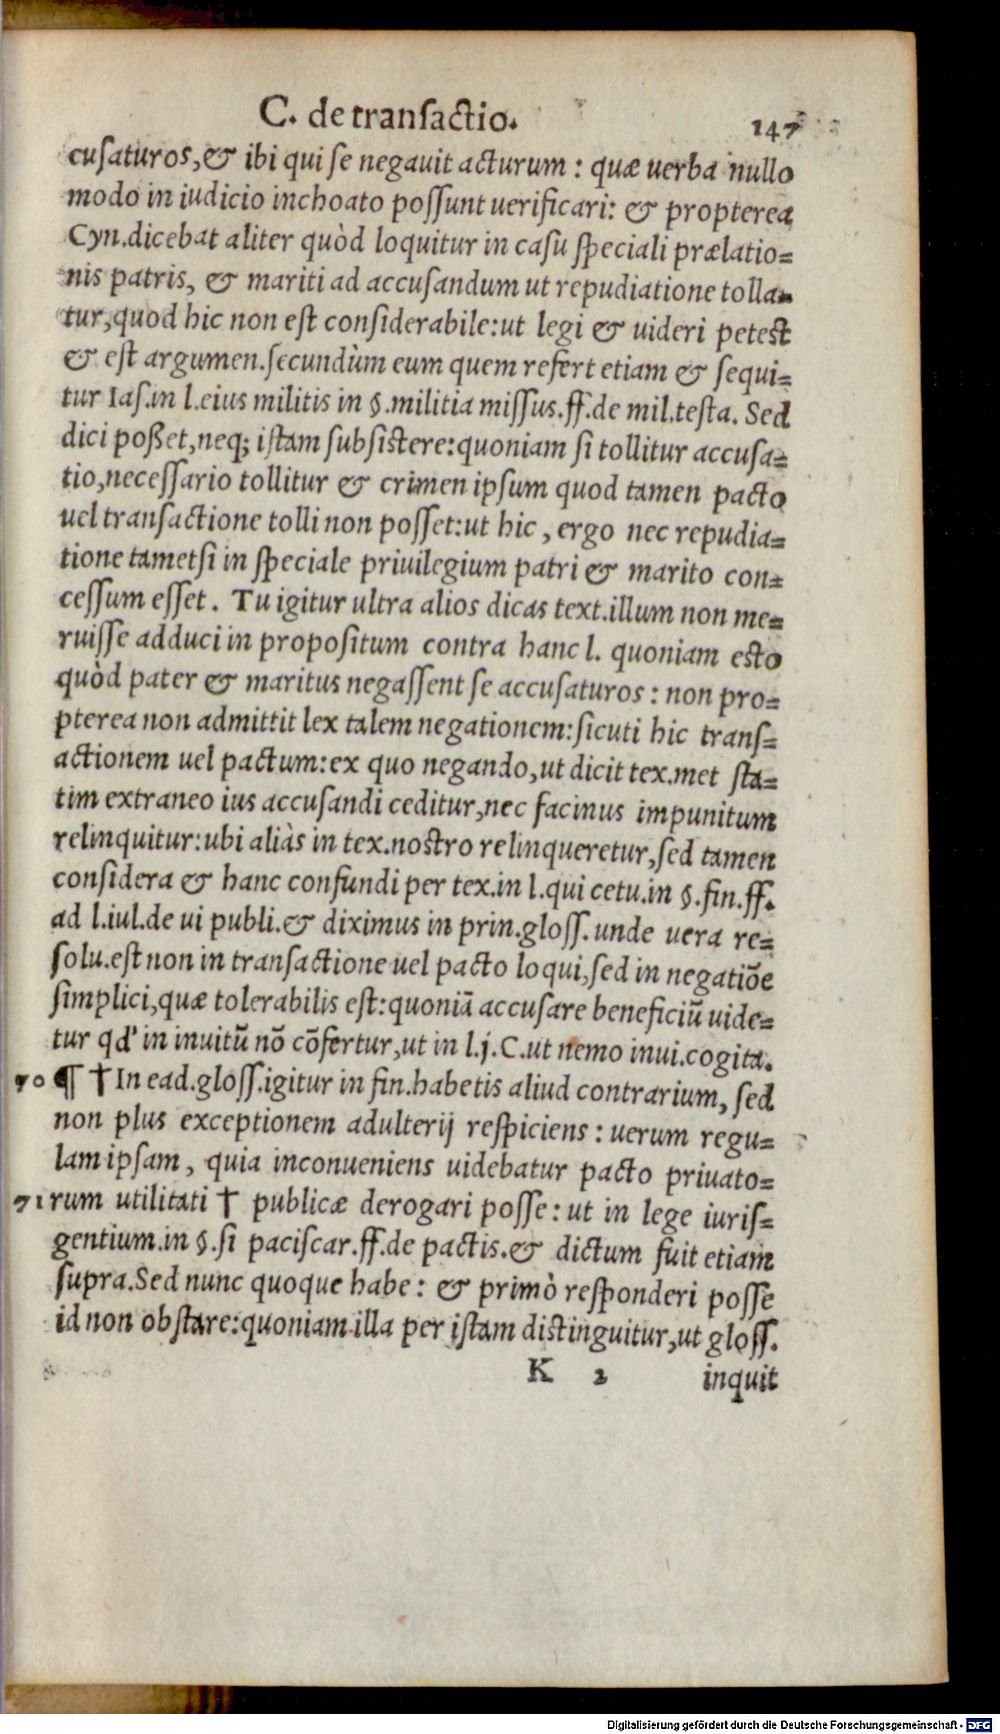 C. de transactio.
147
cuſaturos, & ibi qui ſe negauit acturum : quæ uerba nullo
modo in iudicio inchoato poſſunt uerificari: & propterea
Cyn.dicebat aliter quòd loquitur in caſu ſpeciali prælatio=
nis patris, & mariti ad accuſandum ut repudiatione tolla=
tur, quod hic non eſt conſiderabile:ut legi & uideri petest
& eſt argumen.ſecundùm eum quem refert etiam & ſequi=
tur Iaſ.in l.eius militis in §.militia miſſus.ff.de mil.teſta. Sed
dici poßet, neq; iſtam ſubſiſtere:quoniam ſi tollitur accuſa=
tio, neceſſario tollitur & crimen ipſum quod tamen pacto
uel tranſactione tolli non poſſet:ut hic , ergo nec repudia=
tione tametſi in ſpeciale priuilegium patri & marito con=
ceſſum eſſet . Tu igitur ultra alios dicas text.illum non me=
ruiſſe adduci in propoſitum contra hanc l. quoniam eſto
quòd pater & maritus negaſſent ſe accuſaturos : non pro=
pterea non admittit lex talem negationem:ſicuti hic tranſ=
actionem uel pactum:ex quo negando, ut dicit tex.met ſta=
tim extraneo ius accuſandi ceditur, nec facinus impunitum
relinquitur:ubi aliàs in tex.nostro relinqueretur, ſed tamen
conſidera & hanc confundi per tex.in l.qui cetu.in §.fin.ff.
ad l.iul.de ui publi.& diximus in prin.gloſſ.unde uera re=
ſolu.eſt non in tranſactione uel pacto loqui, ſed in negatiõe
ſimplici, quæ tolerabilis eſt:quoniã accuſare beneficiũ uide=
tur qd' in inuitũ nõ cõfertur, ut in l.j.C.ut nemo inui.cogita.
70 ¶ † In ead.gloſſ.igitur in fin.habetis aliud contrarium, ſed
non plus exceptionem adulterij reſpiciens : uerum regu=
lam ipſam, quia inconueniens uidebatur pacto priuato=
71 rum utilitati † publicæ derogari poſſe : ut in lege iuriſ=
gentium.in §.ſi paciſcar.ff.de pactis.& dictum fuit etiam
ſupra.Sed nunc quoque habe : & primò reſponderi poſſe
id non obſtare:quoniam illa per iſtam diſtinguitur, ut gloſſ.
K 2
inquit
Digitalisierung gefördert durch die Deutsche Forschungsgemeinschaft - DFG